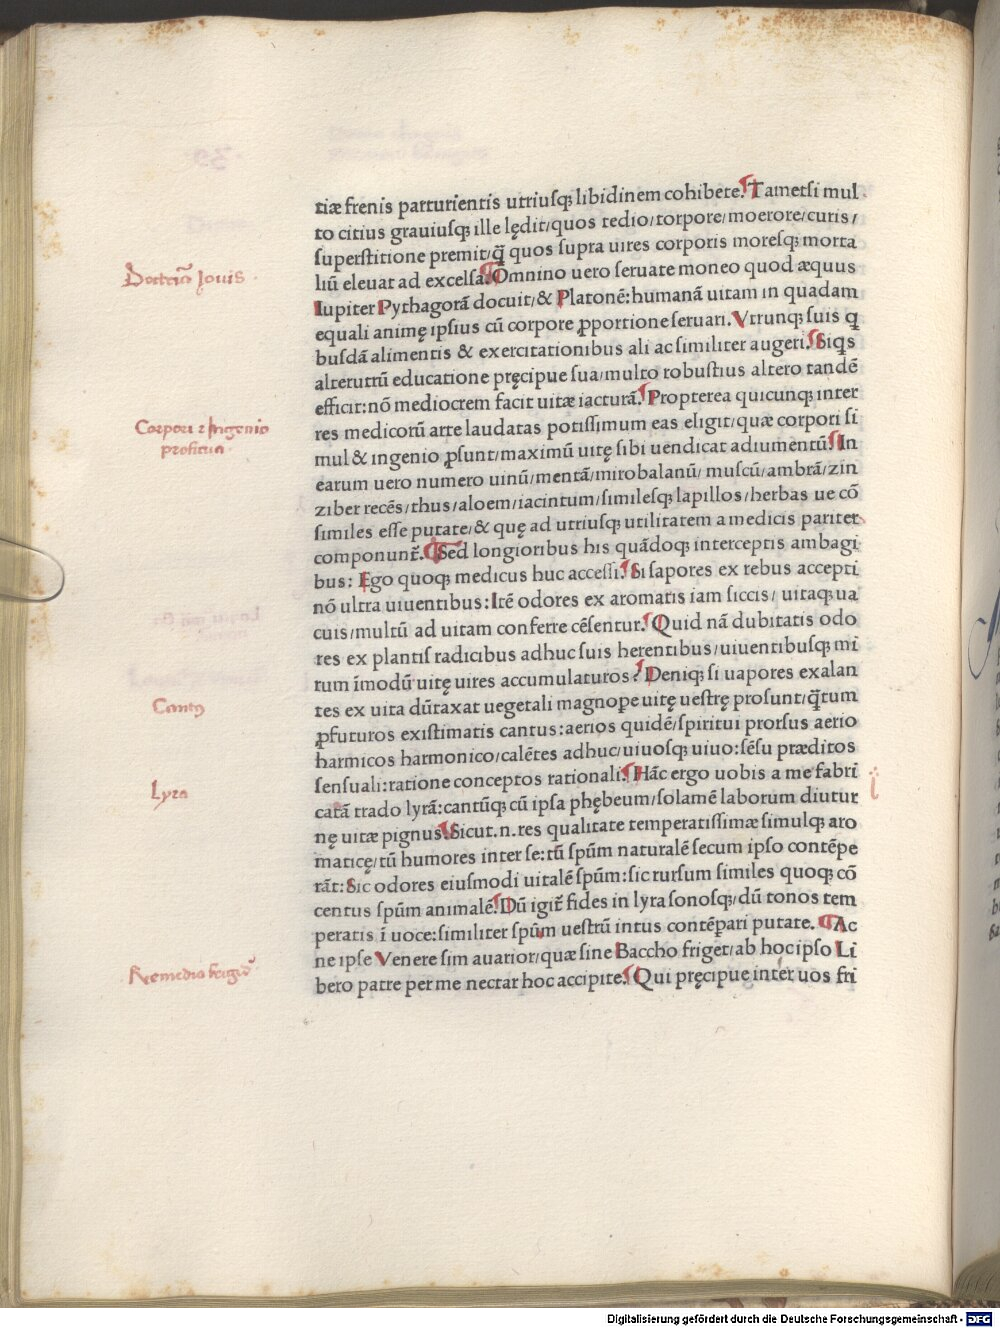 tiæ frenis parturientis utriuſqꝫ libidinem cohibete. Tametſi mul
to citius grauiuſqꝫ ille lędit/quos tedio/torpore/moerore/curis/
ſuperſtitione premit/q̃ quos ſupra uires corporis moreſqꝫ morta
Doctrĩa Iouis
liũ eleuat ad excelſa. Omnino uero ſeruate moneo quod æquus
Iupiter Pythagorã docuit/& Platonẽ: humanã uitam in quadam
equali animę ipſius cũ corpore ꝓportione ſeruari. Vtrunqꝫ ſuis q
buſdã alimentis & exercitationibus ali ac ſimiliter augeri. Siqs
alterutrũ educatione pręcipue ſua/multo robuſtius altero tandẽ
efficit: nõ mediocrem facit uitæ iacturã. Propterea quicunqꝫ inter
Corpori ⁊ Ingenio
proficua ·
res medicorũ arte laudatas potiſſimum eas eligit/quæ corpori ſi
mul & ingenio ꝓſunt/maximũ uitę ſibi uendicat adiumentũ. In
earum uero numero uinũ/mentã/mirobalanũ/muſcũ/ambrã/zin
ziber recẽs/thus/aloem/iacintum/ſimileſqꝫ lapillos/herbas ue cõ
ſimiles eſſe putate/& quę ad utriuſqꝫ utilitatem a medicis pariter
componunt̃. Sed longioribus his quãdoqꝫ interceptis ambagi
bus: Ego quoqꝫ medicus huc acceſſi. Si ſapores ex rebus accepti
nõ ultra uiuentibus: Itẽ odores ex aromatis iam ſiccis/ uitaqꝫ ua
cuis/multũ ad uitam conferre cẽſentur. Quid nã dubitatis odo
res ex plantiſ radicibus adhuc ſuis herentibus/uiuentibuſqꝫ mi
rum ĩmodũ uitę uires accumulaturos? Deniqꝫ ſi uapores exalan
Cantꝰ
tes ex uita dũtaxat uegetali magnope uitę ueſtrę proſunt/q̃tum
ꝓfuturos exiſtimatis cantus: aerios quidẽ/ſpiritui prorſus aerio
harmicos harmonico/calẽtes adhuc/uiuoſqꝫ uiuo: ſẽſu præditos
ſenſuali: ratione conceptos rationali. Hãc ergo uobis a me fabri
Lyra
catã trado lyrã: cantũqꝫ cũ ipſa phębeum/ſolamẽ laborum diutur
nę uitæ pignus. Sicut .n. res qualitate temperatiſſimæ ſimulqꝫ aro
maticę/tũ humores inter ſe: tũ ſpũm naturalẽ ſecum ipſo contẽpe
rãt: Sic odores eiuſmodi uitalẽ ſpũm: ſic rurſum ſimiles quoqꝫ cõ
centus ſpũm animalẽ. Dũ igit̃ fides in lyra ſonoſqꝫ/dũ tonos tem
peratis ĩ uoce: ſimiliter ſpũm ueſtrũ intus contẽpari putate. Ac
ne ipſe Venere ſim auarior/quæ ſine Baccho friget/ab hoc ipſo Li
bero patre per me nectar hoc accipite. Qui pręcipue inter uos fri
Digitalisierung gefördert durch die Deutsche Forschungsgemeinschaft - DFG